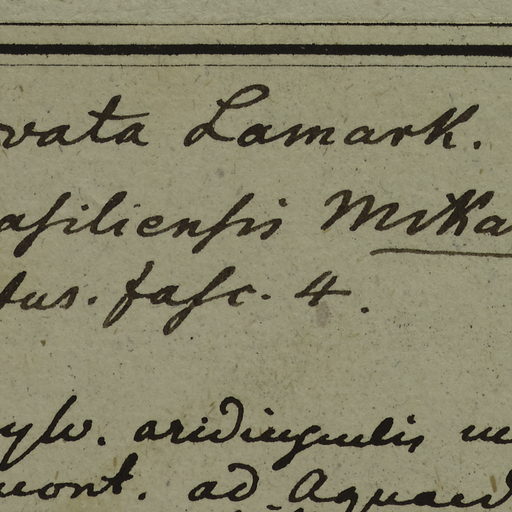 vata Lamark.
asiliensis Mika
tus. fasc. 4.
ylv. aridiusculis
mont. ad Aquaed